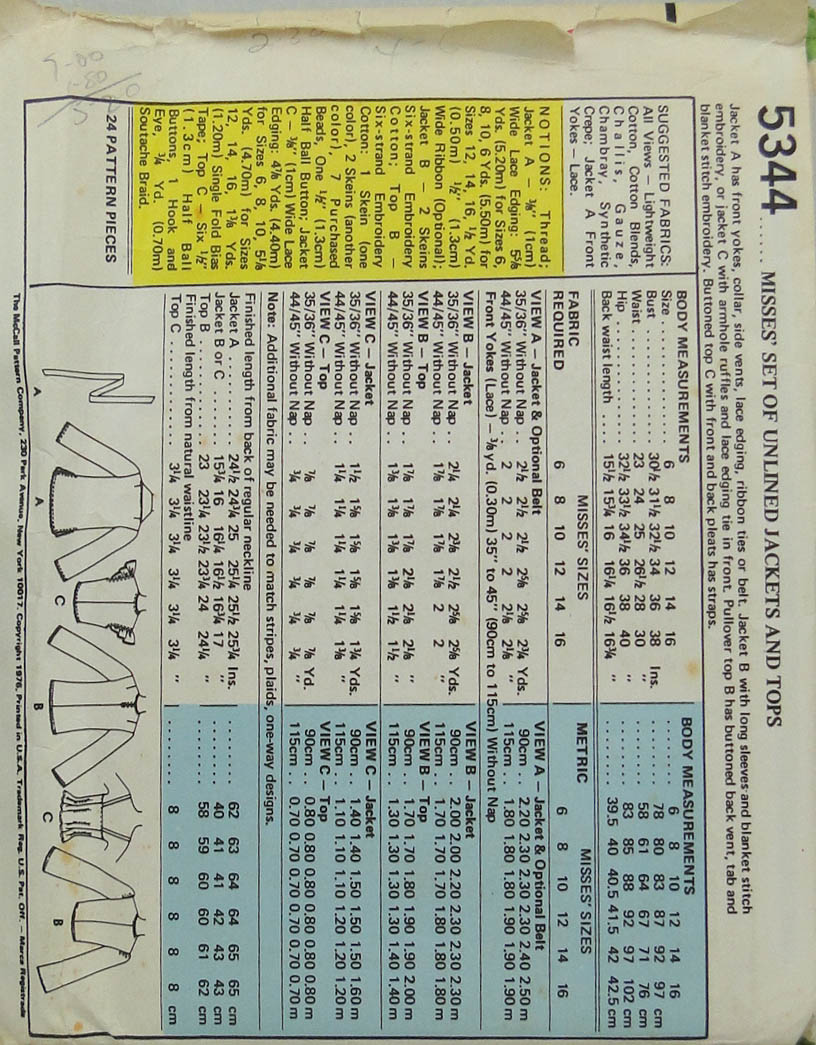 5344 ...... MISSES' SET OF UNLINED JACKETS AND TOPS
Jacket A has front yokes, collar, side vents, lace edging, ribbon ties or belt. Jacket B with long sleeves and blanket stitch
embroidery, or jacket C with armhole ruffles and lace edging tie in front. Pullover top B has buttoned back vent, tab and
blanket stitch embroidery. Buttoned top C with front and back pleats has straps.
SUGGESTED FABRICS:
All Views — Lightweight
Cotton, Cotton Blends,
Challis, Gauze,
Chambray, Synthetic
Crepe; Jacket A Front
Yokes — Lace.
NOTIONS: Thread;
Jacket A — ⅜" (1cm)
Wide Lace Edging: 5⅝
Yds. (5.20m) for Sizes 6,
8, 10, 6 Yds. (5.50m) for
Sizes 12, 14, 16, ½ Yd.
(0.50m) ½" (1.3cm)
Wide Ribbon (Optional);
Jacket B — 2 Skeins
Six-strand Embroidery
Cotton; Top B —
Six-strand Embroidery
Cotton: 1 Skein (one
color), 2 Skeins (another
color), 7 Purchased
Beads, One ½" (1.3cm)
Half Ball Button; Jacket
C — ⅜" (1cm) Wide Lace
Edging: 4⅞ Yds. (4.40m)
for Sizes 6, 8, 10, 5⅛
Yds. (4.70m) for Sizes
12, 14, 16, 1⅜ Yds.
(1.20m) Single Fold Bias
Tape; Top C — Six ½"
(1.3cm) Half Ball
Buttons, 1 Hook and
Eye, ¾ Yd. (0.70m)
Soutache Braid.
24 PATTERN PIECES
BODY MEASUREMENTS
Size .......... 6 8 10 12 14 16
Bust .......... 30½ 31½ 32½ 34 36 38 Ins.
Waist .......... 23 24 25 26½ 28 30 "
Hip .......... 32½ 33½ 34½ 36 38 40 "
Back waist length .... 15½ 15¾ 16 16¼ 16½ 16¾ "
FABRIC REQUIRED MISSES' SIZES
6 8 10 12 14 16
VIEW A — Jacket & Optional Belt
35/36" Without Nap .. 2½ 2½ 2½ 2⅝ 2⅝ 2¾ Yds.
44/45" Without Nap .. 2 2 2 2 2⅛ 2⅛ "
Front Yokes (Lace) — ⅜ yd. (0.30m) 35" to 45" (90cm to 115cm) Without Nap
VIEW B — Jacket
35/36" Without Nap .. 2¼ 2¼ 2⅜ 2½ 2⅝ 2⅝ Yds.
44/45" Without Nap .. 1⅞ 1⅞ 1⅞ 1⅞ 2 2 "
VIEW B — Top
35/36" Without Nap .. 1⅞ 1⅞ 1⅞ 2⅛ 2⅛ 2⅛ "
44/45" Without Nap .. 1⅜ 1⅜ 1⅜ 1⅜ 1½ 1½ "
VIEW C — Jacket
35/36" Without Nap .. 1½ 1⅝ 1⅝ 1⅝ 1⅝ 1¾ Yds.
44/45" Without Nap .. 1¼ 1¼ 1¼ 1¼ 1¼ 1⅜ "
VIEW C — Top
35/36" Without Nap .. ⅞ ⅞ ⅞ ⅞ ⅞ ⅞ Yd.
44/45" Without Nap .. ¾ ¾ ¾ ¾ ¾ ¾ "
Note: Additional fabric may be needed to match stripes, plaids, one-way designs.
Finished length from back of regular neckline
Jacket A ........ 24½ 24¾ 25 25¼ 25½ 25¾ Ins.
Jacket B or C ........ 15¾ 16 16¼ 16½ 16¾ 17 "
Top B ........ 23 23¼ 23½ 23¾ 24 24¼ "
Finished length from natural waistline
Top C ........ 3¼ 3¼ 3¼ 3¼ 3¼ 3¼ "
BODY MEASUREMENTS
........ 6 8 10 12 14 16
........ 78 80 83 87 92 97 cm
........ 58 61 64 67 71 76 cm
........ 83 85 88 92 97 102 cm
........ 39.5 40 40.5 41.5 42 42.5 cm
METRIC MISSES' SIZES
6 8 10 12 14 16
VIEW A — Jacket & Optional Belt
90cm .. 2.20 2.30 2.30 2.30 2.40 2.50 m
115cm .. 1.80 1.80 1.80 1.90 1.90 1.90 m
VIEW B — Jacket
90cm .. 2.00 2.00 2.20 2.30 2.30 2.30 m
115cm .. 1.70 1.70 1.70 1.80 1.80 1.80 m
VIEW B — Top
90cm .. 1.70 1.70 1.80 1.90 1.90 2.00 m
115cm .. 1.30 1.30 1.30 1.30 1.40 1.40 m
VIEW C — Jacket
90cm .. 1.40 1.40 1.50 1.50 1.50 1.60 m
115cm .. 1.10 1.10 1.10 1.20 1.20 1.20 m
VIEW C — Top
90cm .. 0.80 0.80 0.80 0.80 0.80 0.80 m
115cm .. 0.70 0.70 0.70 0.70 0.70 0.70 m
........ 62 63 64 64 65 65 cm
........ 40 41 41 42 43 43 cm
........ 58 59 60 60 61 62 cm
........ 8 8 8 8 8 8 cm
A
A
C
B
C
B
The McCall Pattern Company, 230 Park Avenue, New York 10017, Copyright 1976, Printed in U.S.A. Trademark Reg. U.S. Pat. Off. — Marca Registrada